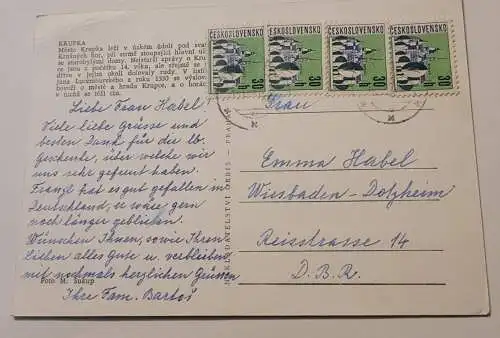 KRUPKA
Město Krupka leží v úzkém údolí pod
Krušných hor, při strmě stoupající hlavní
se starobylými domy. Nejstarší zprávy o
ce jsou z počátku 14. věku, ale zřejmě se
dříve v jejím okolí dolovaly rudy. V listi
Jana Lucemburského z roku 1330 se výslov
hovoří o městě a hradu Krupce, a o horác
v nichž se těží cín.
ČESKOSLOVENSKO ČESKOSLOVENSKO ČESKOSLOVENSKO ČESKOSLOVENSKO
30 h 30 h 30 h 30 h
Liebe Frau Habel!
Viele liebe Grüsse und
besten Dank für der lb.
Geschenke, über welche wir
uns sehr gefreut haben.
Franzl hat es gut gefallen in
Deutschland, er wäre gern
noch länger geblieben.
Wünschen Ihnen, sowie Ihren
Lieben alles Gute u. verbleiben
mit nochmals herzlichen Grüssen
Ihre Fam. Bartoš
Foto M. Sukup
NAKLADATELSTVÍ ORBIS - PRAHA
Frau
Emma Habel
Wiesbaden-Dotzheim
Reisstrasse 14
D.B.R.